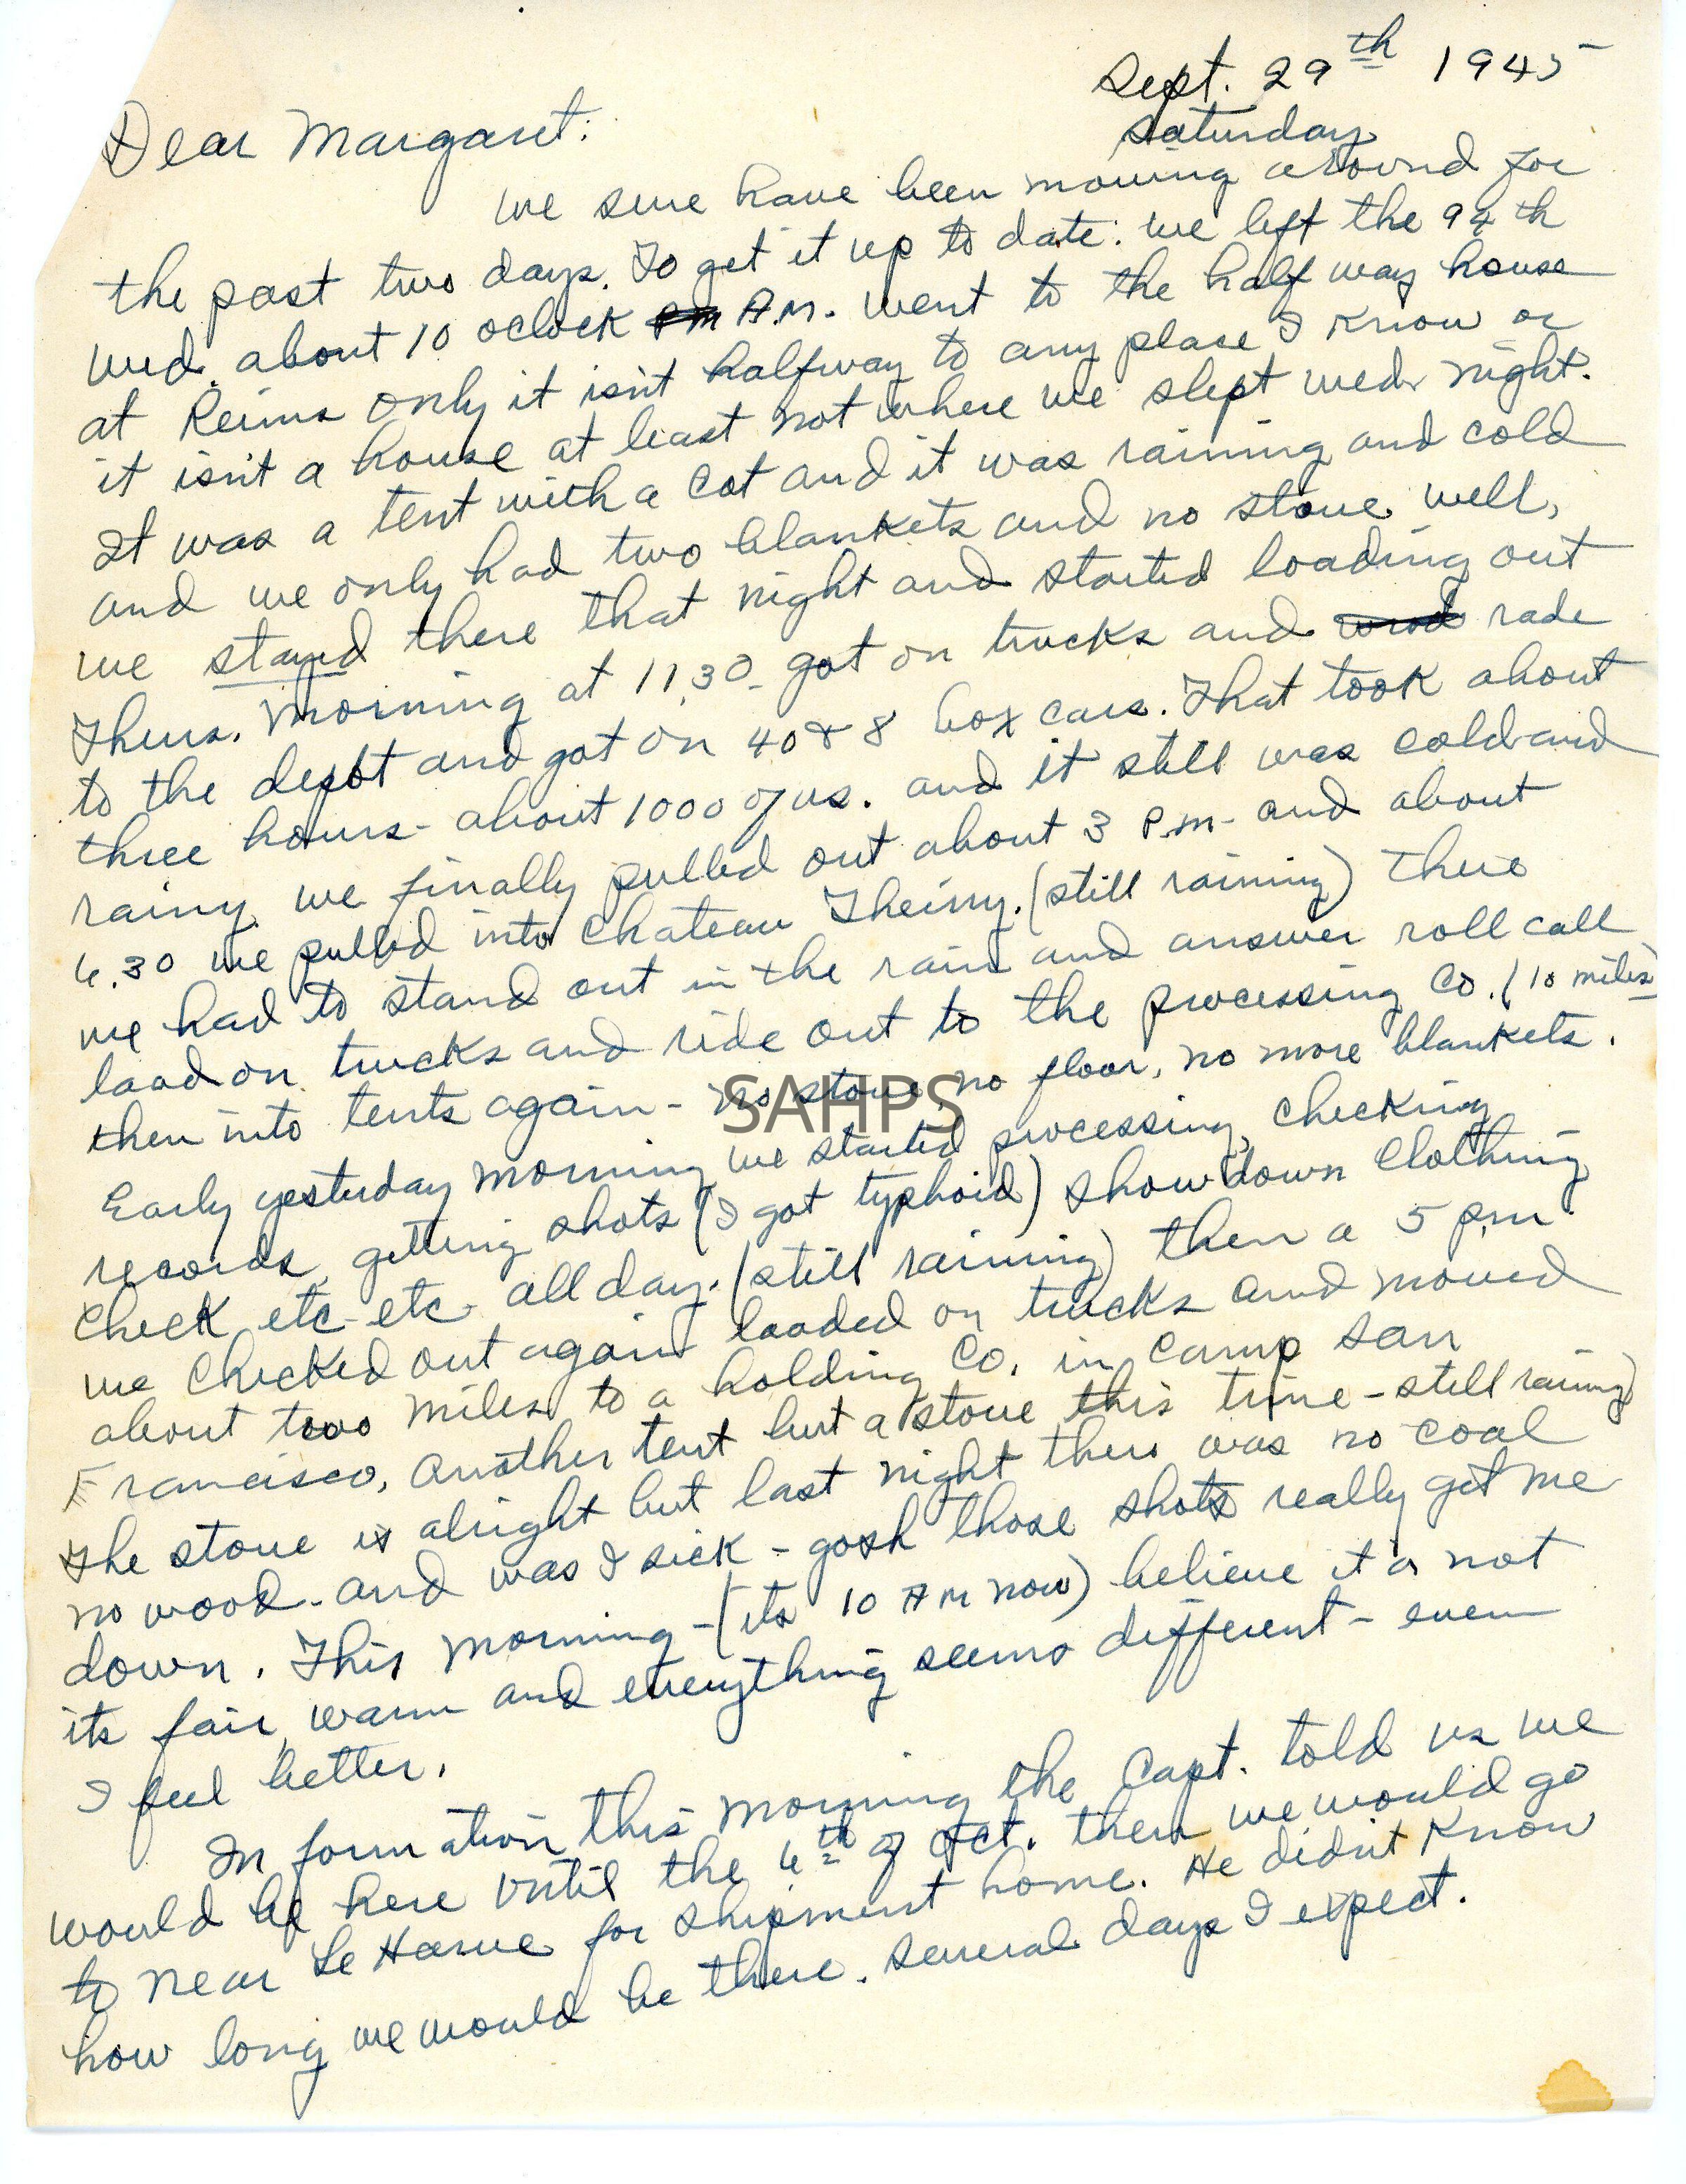 Sept. 29th 1945
Saturday
Dear Margaret:
We sure have been moving around for
the past two days. To get it up to date: we left the 94th
wed. about 10 oclock pm A.M. went to the half way house
at Reims only it isn't halfway to any place I know or
it isn't a house at least not where we slept wed. night.
It was a tent with a cot and it was raining and cold
and we only had two blankets and no stove. well,
we stayed there that night and started loading out
Thurs. morning at 11.30 - got on trucks and rode
to the depot and got on 40 & 8 box cars. That took about
three hours - about 1000 of us. and it still was cold and
rainy. we finally pulled out about 3 P.m - and about
6.30 we pulled into Chateau Theirry. (still raining) there
we had to stand out in the rain and answer roll call
load on trucks and ride out to the processing Co. (10 miles)
then into tents again - no stove, no floor, no more blankets.
SAHPS
Early yesterday morning we started processing, checking
records, getting shots (I got typhoid) showdown clothing
check etc - etc - all day. (still raining) then a 5 p.m
we checked out again loaded on trucks and moved
about two miles to a holding Co. in Camp San
Francisco. another tent but a stove this time - still raining)
The stove is alright but last night there was no coal
no wood - and was I sick - gosh those shots really get me
down. This morning - (its 10 AM now) believe it or not
its fair, warm and everything seems different - even
I feel better.
In formation this morning the Capt. told us we
would be here until the 6th of Oct. then we would go
to near Le Harve for shipment home. He didn't know
how long we would be there. several days I expect.